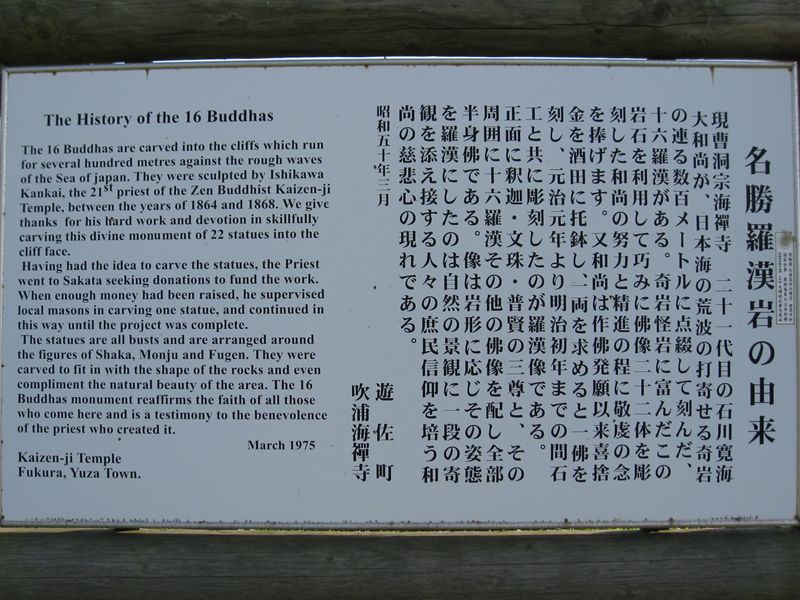 The History of the 16 Buddhas
The 16 Buddhas are carved into the cliffs which run
for several hundred metres against the rough waves
of the Sea of japan. They were sculpted by Ishikawa
Kankai, the 21st priest of the Zen Buddhist Kaizen-ji
Temple, between the years of 1864 and 1868. We give
thanks for his hard work and devotion in skillfully
carving this divine monument of 22 statues into the
cliff face.
Having had the idea to carve the statues, the Priest
went to Sakata seeking donations to fund the work.
When enough money had been raised, he supervised
local masons in carving one statue, and continued in
this way until the project was complete.
The statues are all busts and are arranged around
the figures of Shaka, Monju and Fugen. They were
carved to fit in with the shape of the rocks and even
compliment the natural beauty of the area. The 16
Buddhas monument reaffirms the faith of all those
who come here and is a testimony to the benevolence
of the priest who created it.
March 1975
Kaizen-ji Temple
Fukura, Yuza Town.
名勝羅漢岩の由来
現曹洞宗海禪寺 二十一代目の石川寛海
大和尚が、日本海の荒波の打寄せる奇岩
の連る数百メートルに点綴して刻んだ、
十六羅漢がある。奇岩怪岩に富んだこの
岩石を利用して巧みに佛像二十二体を彫
刻した和尚の努力と精進の程に敬虔の念
を捧げます。又和尚は作佛発願以来喜捨
金を酒田に托鉢し、一両を求めると一佛を
刻し、元治元年より明治初年までの間石
工と共に彫刻したのが羅漢像である。
正面に釈迦・文珠・普賢の三尊と、その
周囲に十六羅漢その他の佛像を配し全部
半身佛である。像は岩形に応じその姿態
を羅漢にしたのは自然の景観に一段の寄
観を添え接する人々の庶民信仰を培う和
尚の慈悲心の現れである。
昭和五十年三月
遊佐町
吹浦海禪寺